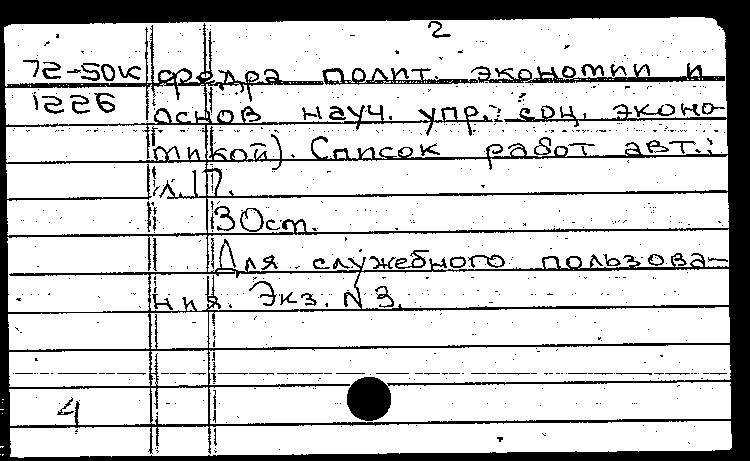 2
72-50к федра полит. экономии и
1226 основ науч. упр. соц. эконо-
микой). Список работ авт.:
л. 17.
30ст.
Для служебного пользова-
ния. Экз. N 3.
4